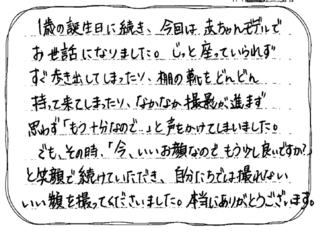 1歳の誕生日に続き、今回は赤ちゃんモデルで
お世話になりました。じっと座っていられず
すぐ歩き出してしまったり、棚の靴をどんどん
持って来てしまったり、なかなか撮影が進まず
思わず「もう十分なので…」と声をかけてしまいました。
でも、その時、「今、いいお顔なのでもう少し良いですか？」
と笑顔で続けていただき、自分たちでは撮れない
いい顔を撮ってくださいました。本当にありがとうございます。